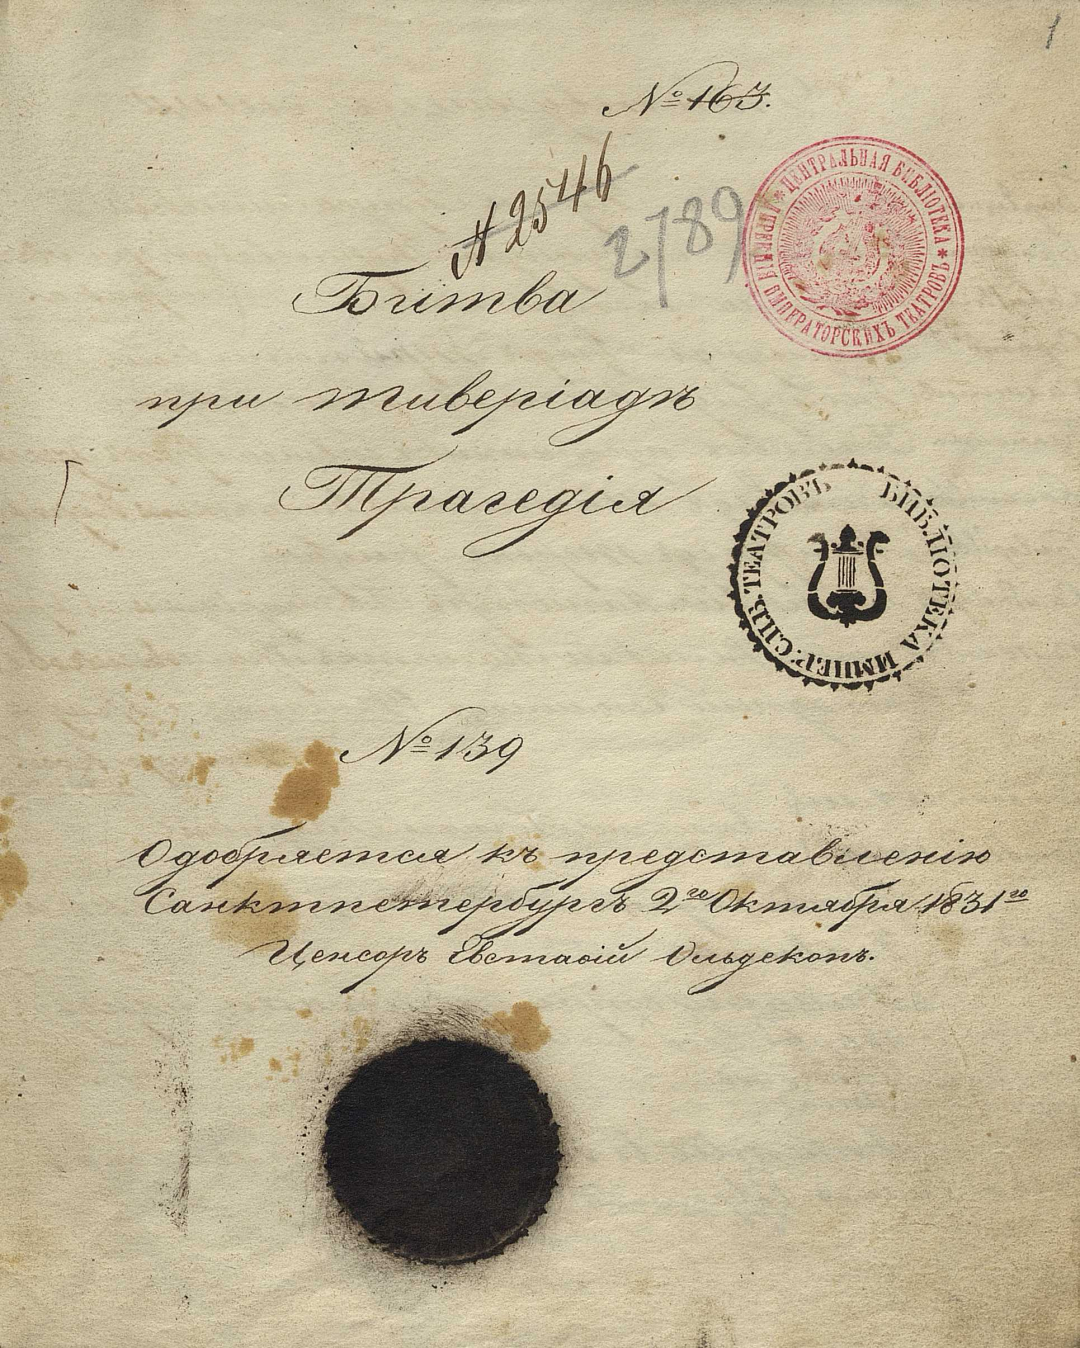 1
№ 163.
№ 2546
2/89
ЦЕНТРАЛЬНАЯ БИБЛІОТЕКА * ИМПЕРАТОРСКИХЪ ТЕАТРОВЪ *
Битва
при тиверіадѣ
Трагедія
БИБЛІОТЕКА ИМПЕР: СПБ. ТЕАТРОВЪ
№ 139
Одобряется къ представленію
Санктпетербургъ 2го Октября 1831го
Ценсоръ Евстафій Ольдекопъ.